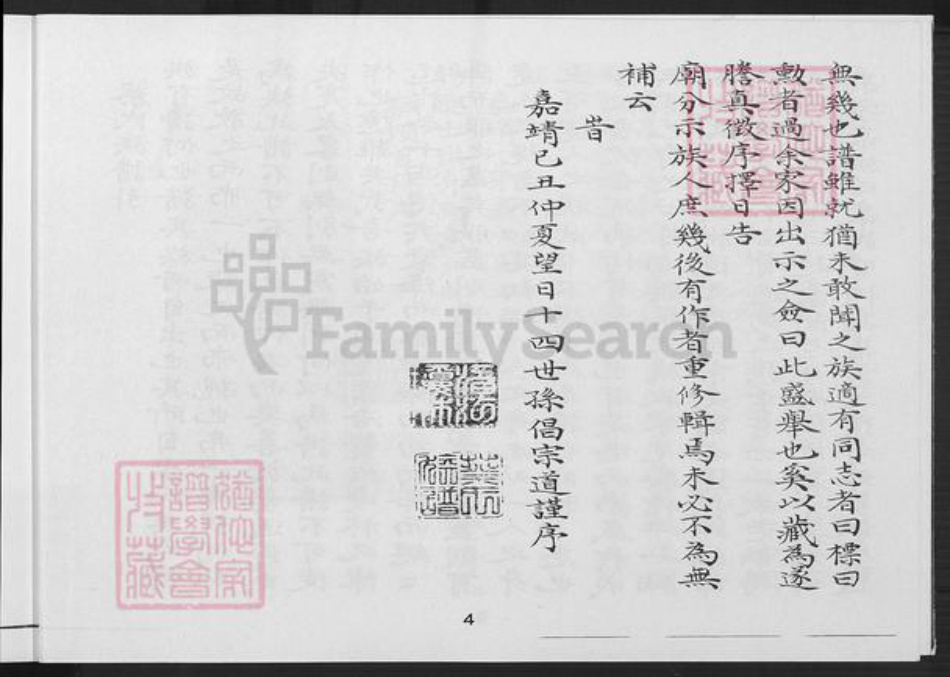 無幾也譜雖就猶未敢聞之族適有同志者曰標曰
勲者過余家因出示之僉曰此盛舉也奚以藏為遂
謄真徵序擇日告
廟分示族人庶幾後有作者重修輯焉未必不為無
補云
旹
嘉靖己丑仲夏望日十四世孫倡宗道謹序
FamilySearch
譜學會
4